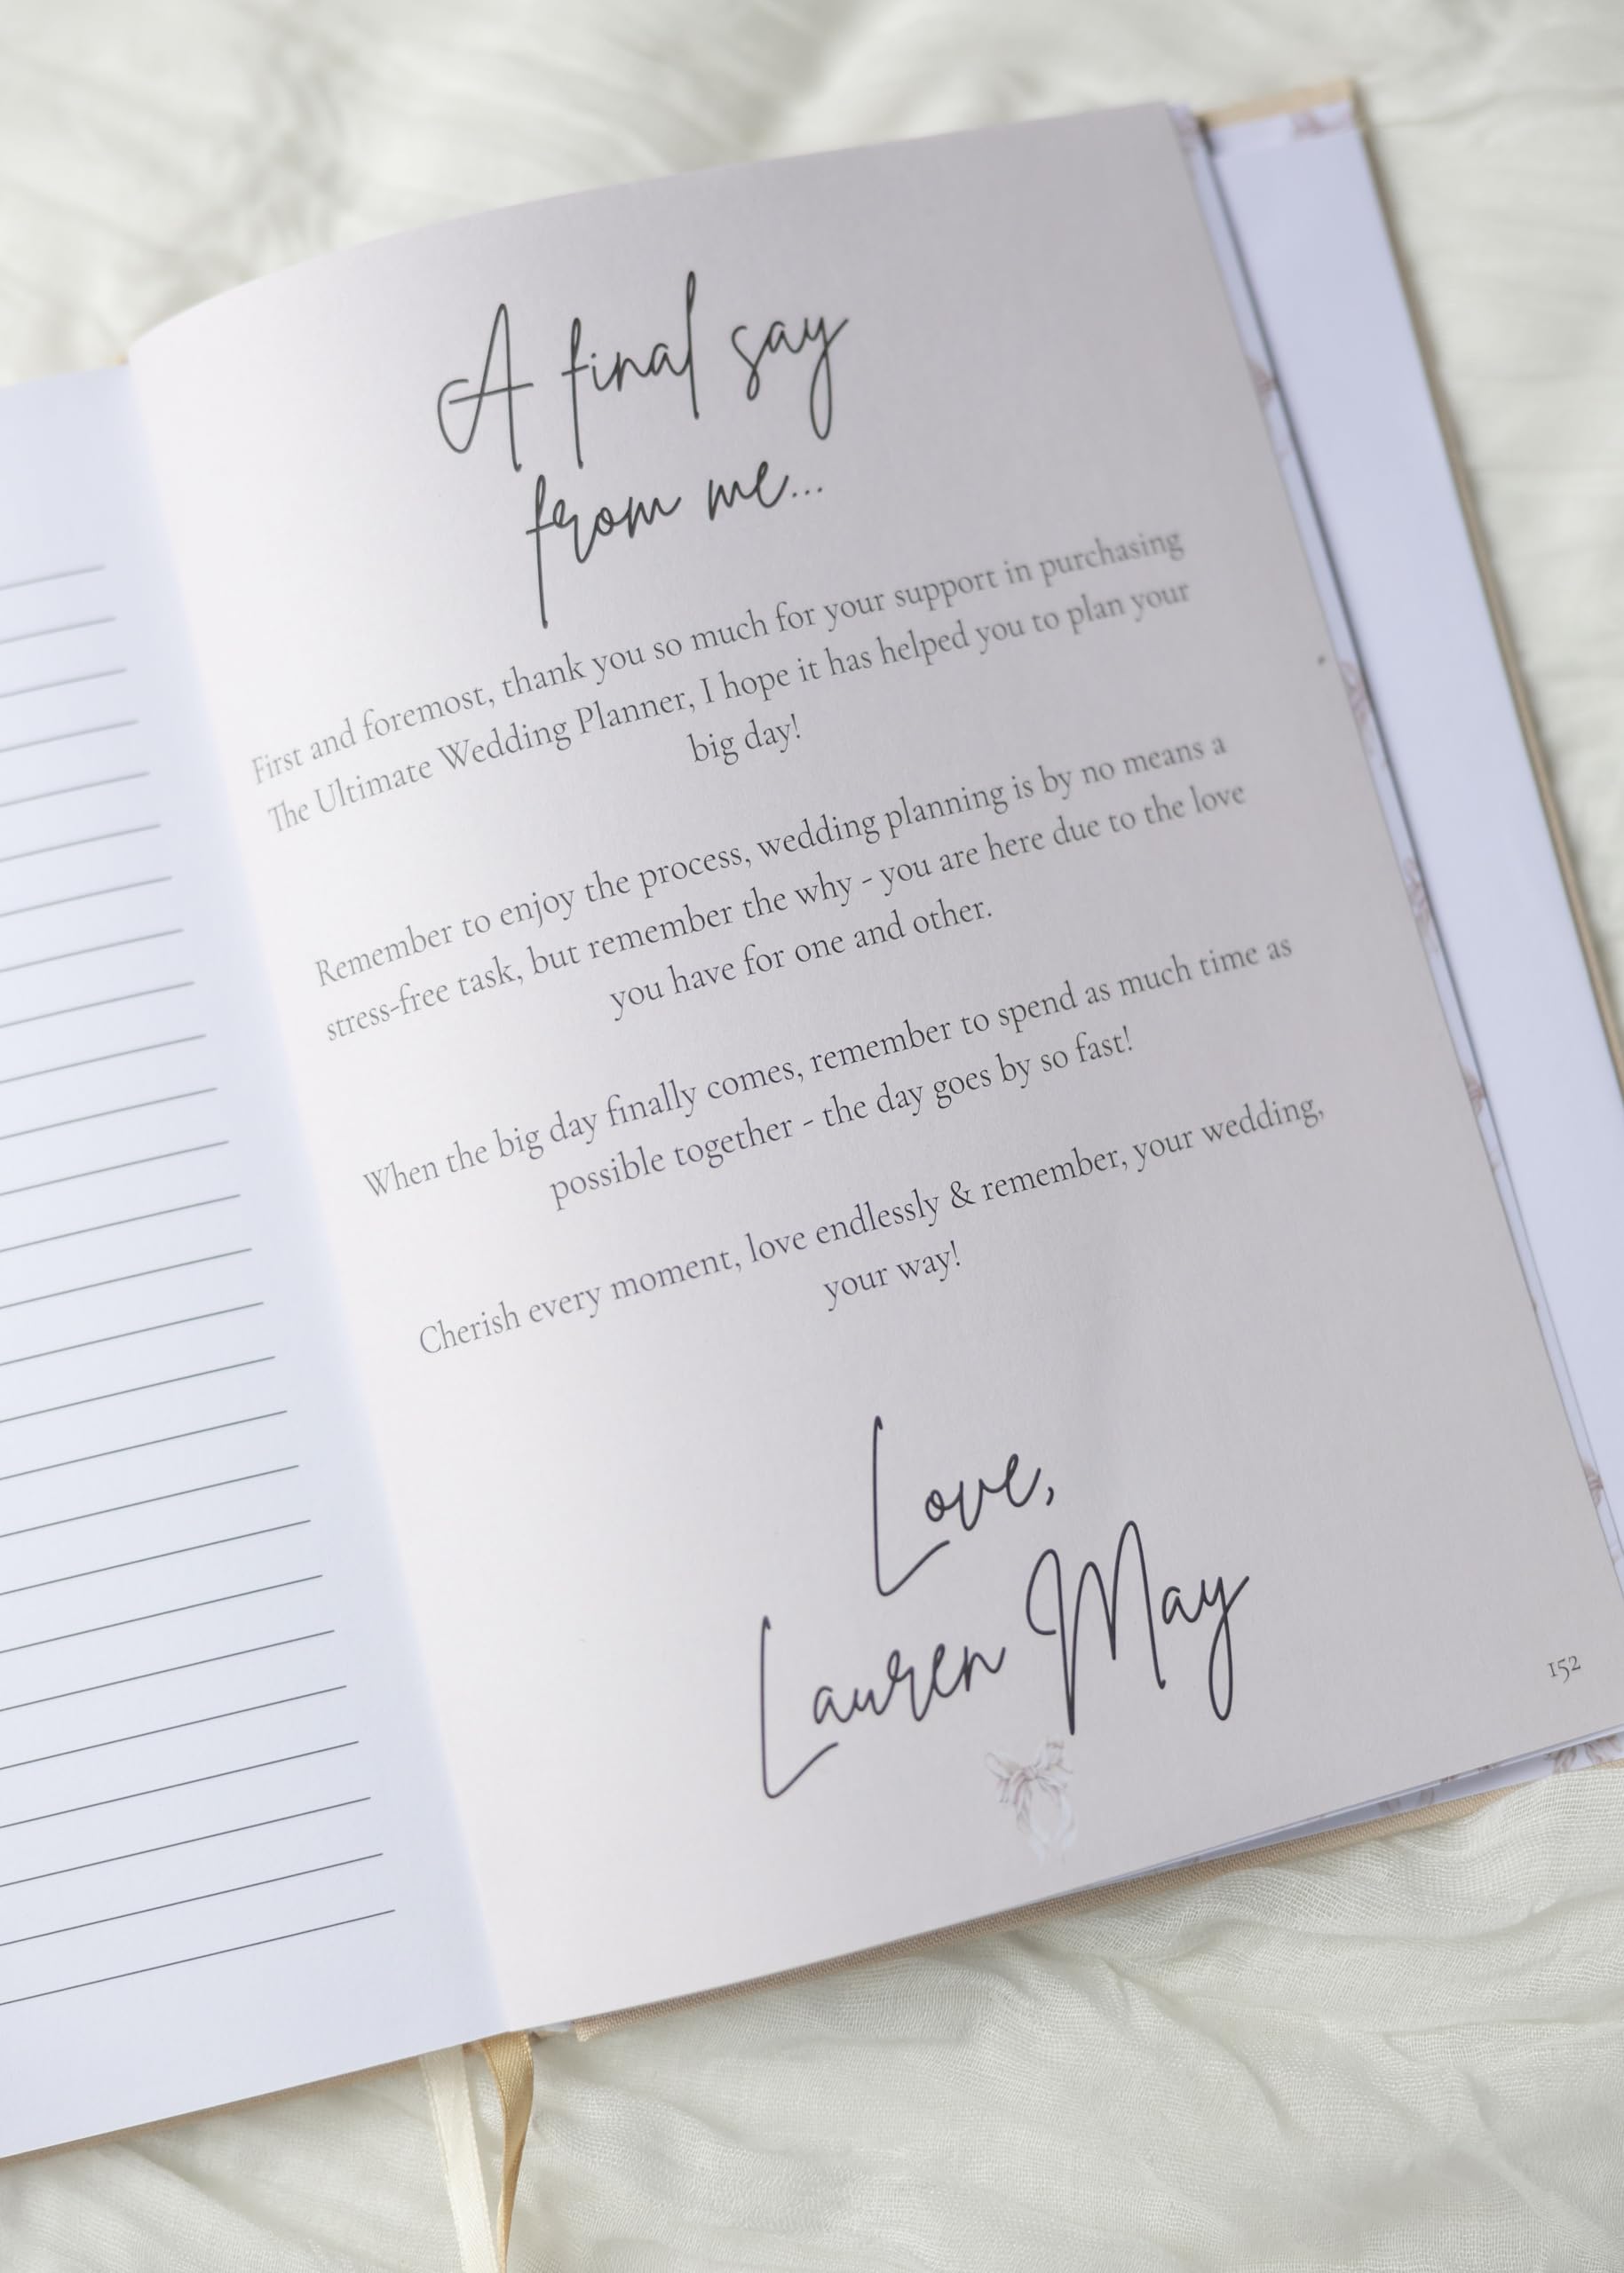 A final say
from me...
First and foremost, thank you so much for your support in purchasing
The Ultimate Wedding Planner, I hope it has helped you to plan your
big day!
Remember to enjoy the process, wedding planning is by no means a
stress-free task, but remember the why - you are here due to the love
you have for one and other.
When the big day finally comes, remember to spend as much time as
possible together - the day goes by so fast!
Cherish every moment, love endlessly & remember, your wedding,
your way!
Love,
Lauren May
152